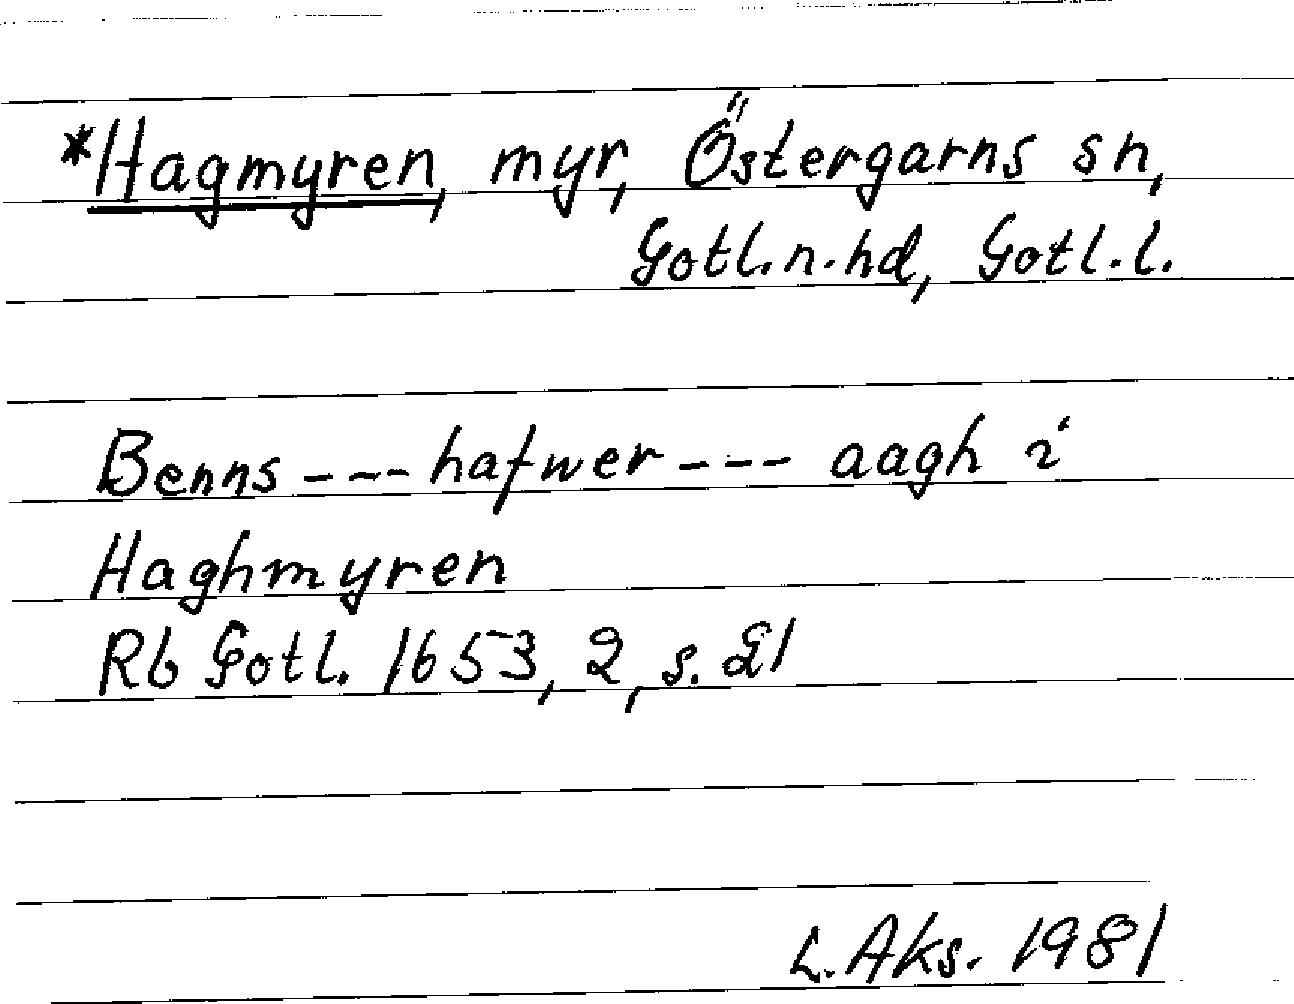 *Hagmyren, myr, Östergarns sn,
Gotl.n.hd, Gotl.l.
Benns --- hafwer --- aagh i
Haghmyren
Rb Gotl. 1653, 2, s. 21
L. Aks. 1981